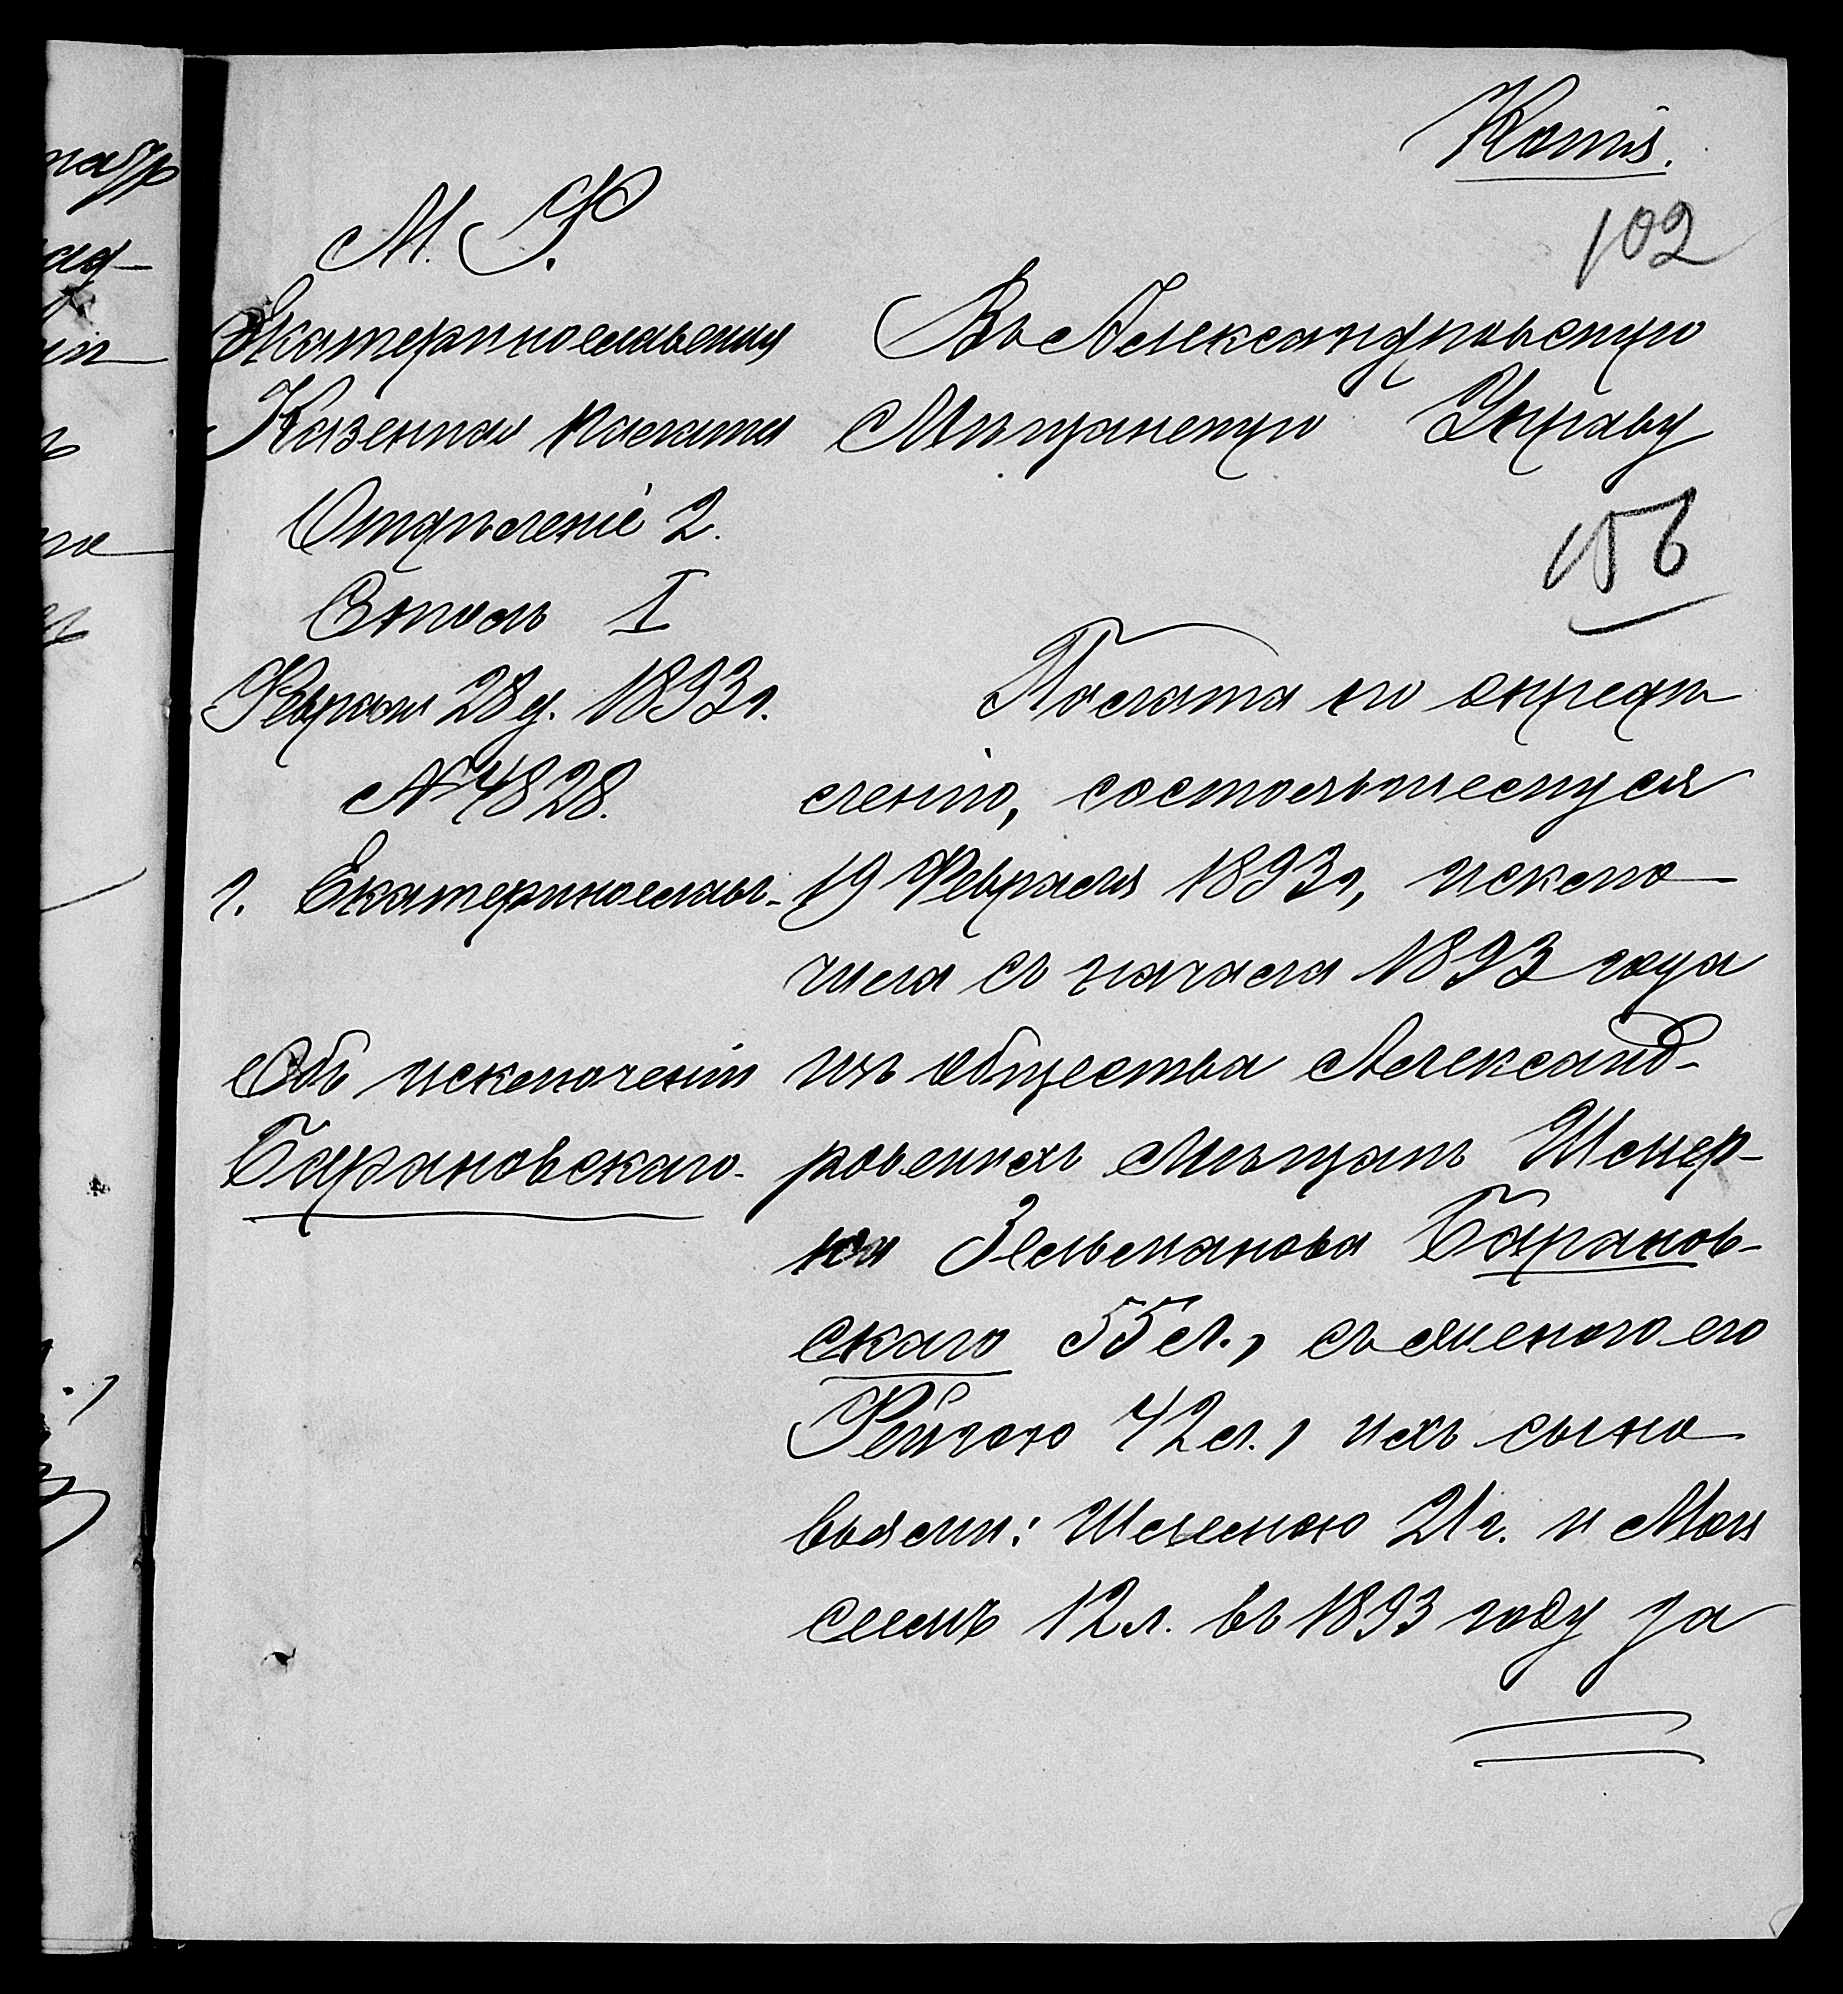 Копія.
102
М. Ф.
Екатеринославская
Казенная палата
Отдѣленіе 2.
Столъ I
Февраля 28 д. 1893 г.
№ 4828.
г. Екатеринославъ.
Объ исключеніи
Барановскаго.
Въ Александровскую
Мѣщанскую Управу
156
Палата по опредѣ
ленію, состоявшемуся
19 Февраля 1893 г, исклю
чила съ начала 1893 года
изъ общества Александ-
ровскихъ мѣщанъ Шмер-
ка Зельманова Баранов-
скаго 55 л., съ женою его
Фейгою 42 л., ихъ сыно
вьями: Шлемою 21 г. и Мои
сеемъ 12 л. въ 1893 году за